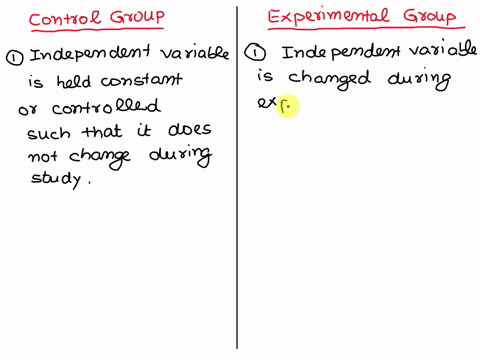 Control Group
① Independent variable
is held constant
or controlled
such that it does
not change during
study.
Experimental Group
① Independent variable
is changed during
exp.